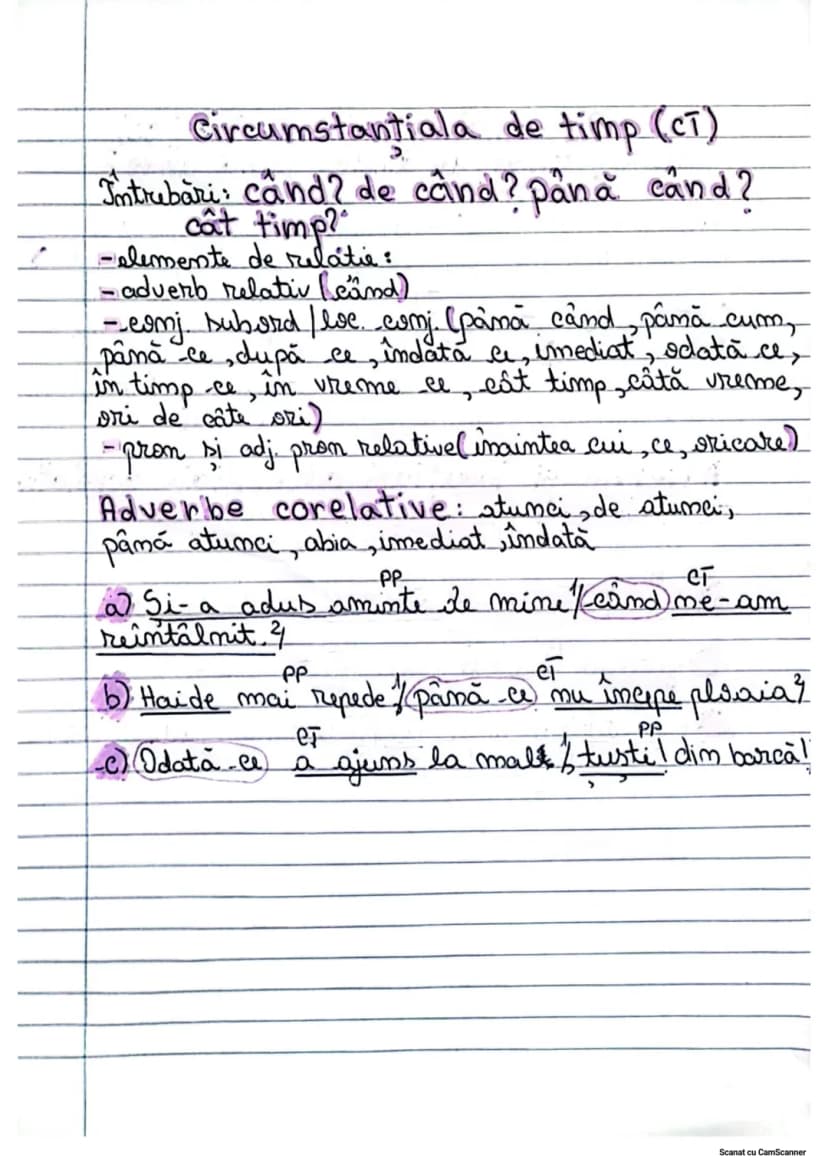 Circumstanțiala de timp (CT)
Întrebări: când? de când? până când?
cât timp?
-elemente de relatie:
-adverb relativ (când)
-conj. subord/loc. conj. (până când, până cum,
până ce, după ce, îndată ce, imediat, odată ce,
în timp ce, în vreme ce, cât timp, câtă vreme,
ori de câte ori)
-pron și adj. pron relative (inaintea cui, ce, oricare)
Adverbe corelative: atunci, de atunci,
până atunci, abia, imediat, îndată
PP CT
a) Si-a adus aminte de mine 1/ când ne-am
reîntâlnit. 2/
PP CT
b) Haide mai repede 1/ până ce nu începe ploaia 2/
CT PP
-c) Odată ce a ajuns la mal 1/, țuști! din barcă!
Scanat cu CamScanner